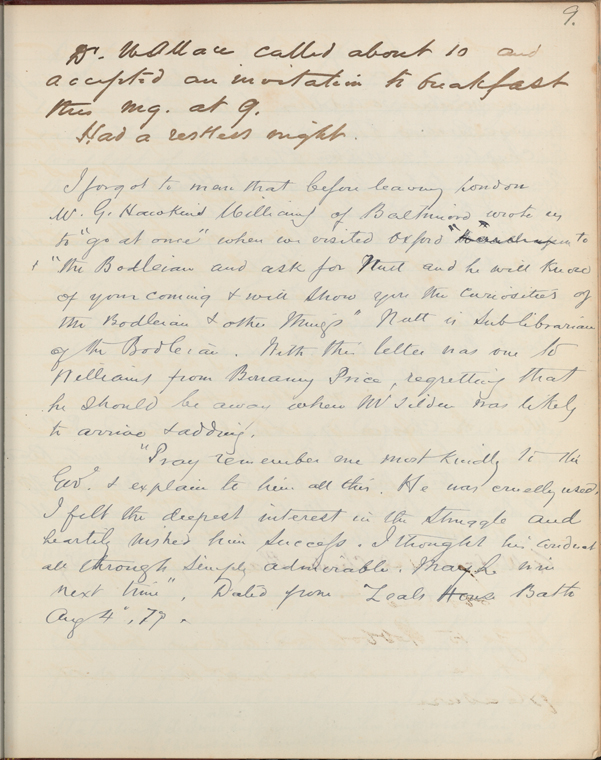 9.
Dr. Wallace called about 10 and
accepted an invitation to breakfast
this mg. at 9.
Had a restless night.
I forgot to men that before leaving London
W. G. Hawkins Williams of Baltimore wrote us
to "go at once" when we visited Oxford " to
"the Bodleian and ask for Nutt and he will know
of your coming & will show you the curiosities of
the Bodleian & other things" Nutt is sub librarian
of the Bodleian. With this letter was one to
Williams from Bonamy Price, regretting that
he should be away when Mr Tilden was likely
to arrive & adding.
"Pray remember me most kindly to the
Govr. & explain to him all this. He was cruelly used.
I felt the deepest interest in the struggle and
heartily wished him success. I thought his conduct
all through simply admirable. May he win
next time". Dated from Zeals House Bath
Aug 4", 77.